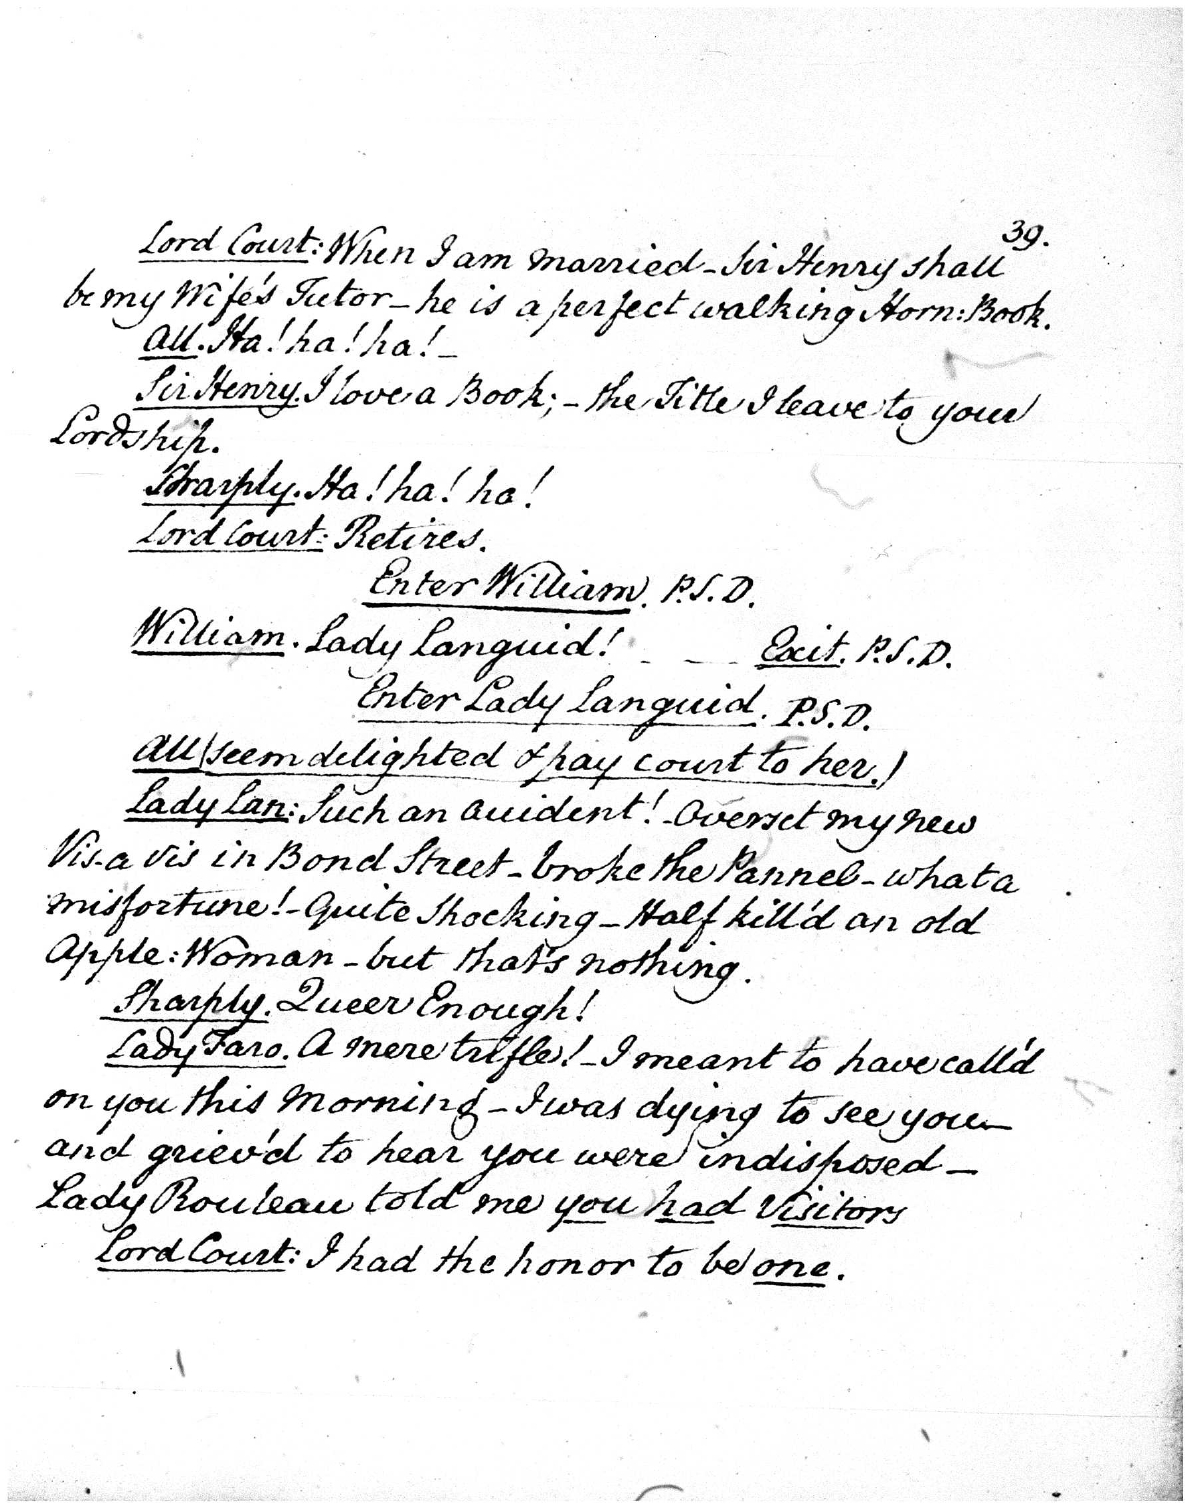 39.
Lord Court: When I am married - Sir Henry shall
be my Wife's Tutor - he is a perfect walking Horn: Book.
All. Ha! ha! ha! -
Sir Henry. I love a Book; - the Title I leave to your
Lordship.
Sharply. Ha! ha! ha!
Lord Court: Retires.
Enter William. P.S.D.
William. Lady Languid! - - - Exit. P.S.D.
Enter Lady Languid. P.S.D.
All (seem delighted & pay court to her.)
Lady Lan: Such an accident! - Overset my new
Vis-a vis in Bond Street - broke the Pannel - what a
misfortune! - Quite Shocking - Half kill'd an old
Apple: Woman - but that's nothing.
Sharply. Queer Enough!
Lady Faro. A mere trifle! - I meant to have call'd
on you this Morning - I was dying to see you -
and griev'd to hear you were indisposed -
Lady Rouleau told me you had Visitors
Lord Court: I had the honor to be one.